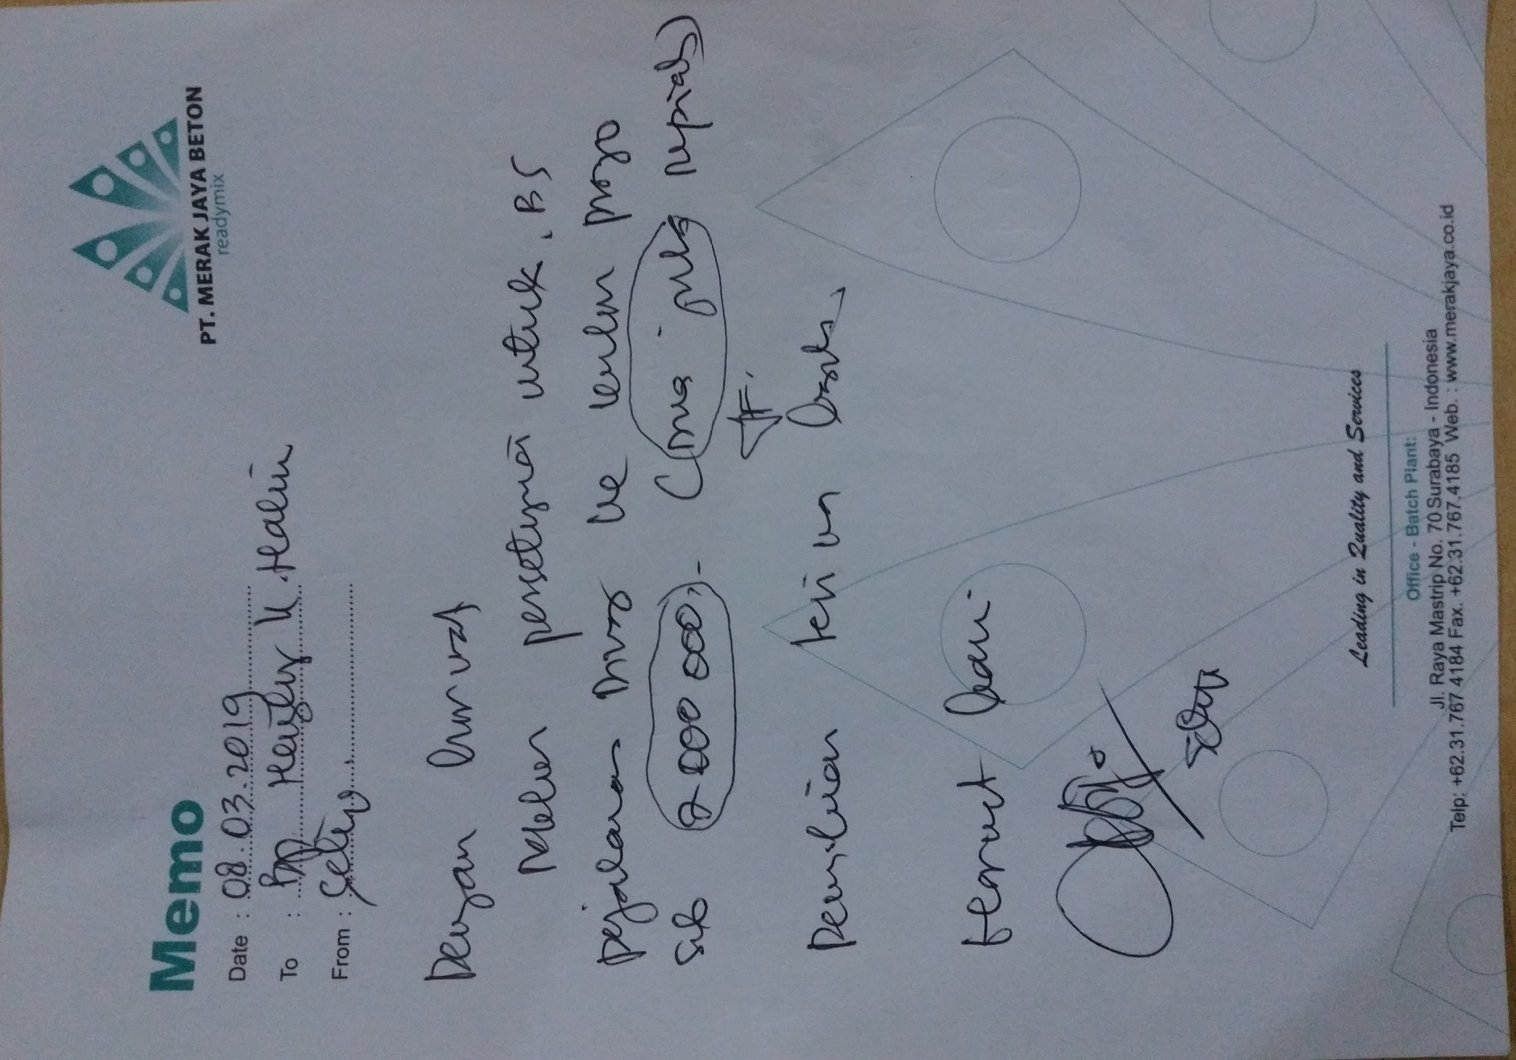 PT. MERAK JAYA BETON
readymix
Memo
Date : 08.03.2019
To : Bp K. Halim
From : Setyo.
Dengan hormat
Mohon persetujuan untuk BS
perjalanan Dinas ke kulon progo
sbb 2 000 000,- (Dua juta rupiah)
Demikian terima kasih.
Hormat kami
Setyo
Leading in Quality and Services
Office - Batch Plant:
Jl. Raya Mastrip No. 70 Surabaya - Indonesia
Telp: +62.31.767 4184 Fax. +62.31.767.4185 Web. : www.merakjaya.co.id